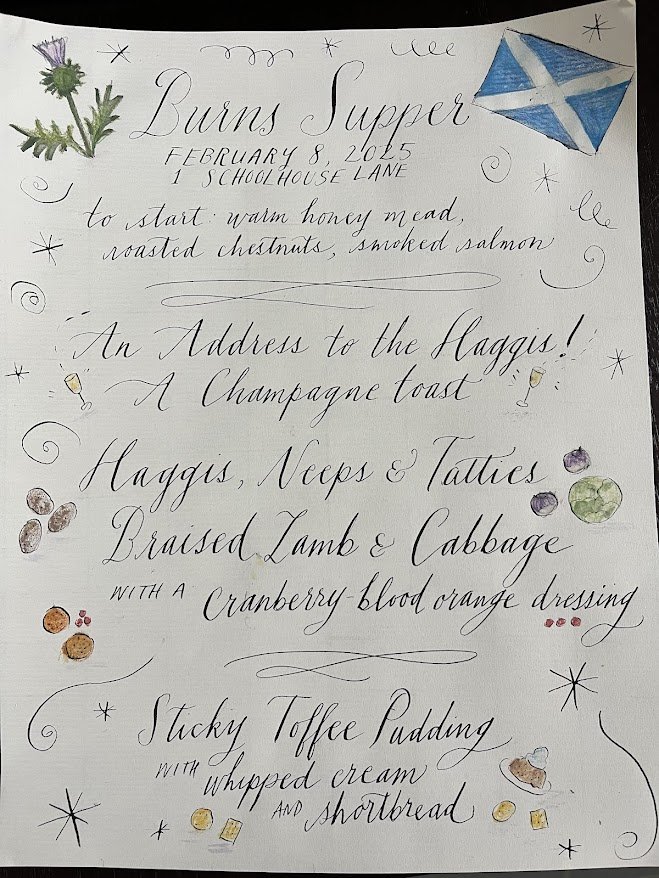 Burns Supper
FEBRUARY 8, 2025
1 SCHOOLHOUSE LANE
to start: warm honey mead,
roasted chestnuts, smoked salmon
An Address to the Haggis!
A Champagne toast
Haggis, Neeps & Tatties
Braised Lamb & Cabbage
WITH A cranberry-blood orange dressing
Sticky Toffee Pudding
WITH whipped cream
AND shortbread